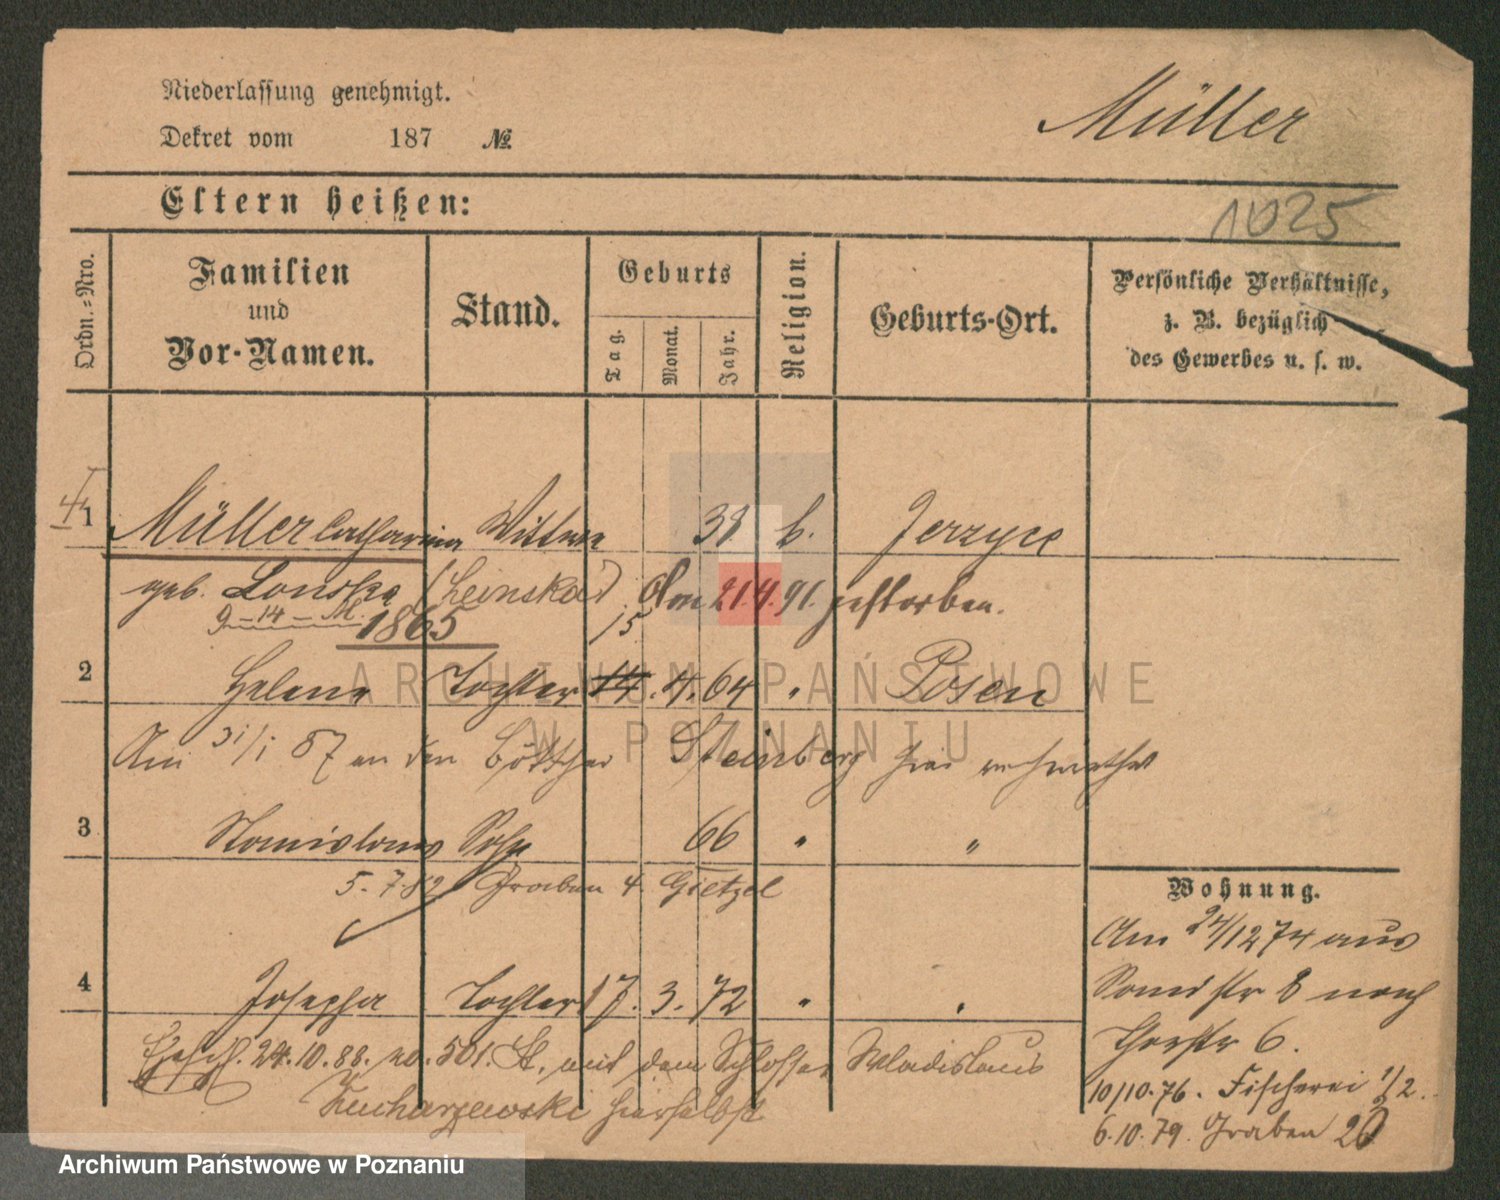 Niederlassung genehmigt.
Müller
Dekret vom 187 №
Eltern heißen:
1025
Ordn.=Nro.
Familien
und
Vor-Namen.
Stand.
Geburts
Tag.
Monat.
Jahr.
Religion.
Geburts-Ort.
Persönliche Verhältnisse,
z. B. bezüglich
des Gewerbes u. s. w.
1 Müller Catharina Wittwe 38 k. Jerzyce
geb. Lonska (Leinska) Am 21.4.91. gestorben.
9-14-M. 1865 15
2 Helena Tochter 14. 4. 64 " Posen
Am 31/1 87 an den Böttcher Steinberg hier verheirathet
3 Stanislaus Sohn 66 " "
5.7.82 Graben 4 Gietzel
4 Josepha Tochter 17. 3. 72 " "
Ehesch. 24.10.88. no. 501. St. mit dem Schlosser Wladislaus
Kucharzewski hierselbst
Wohnung.
Am 24/12 74 aus
8 nach
Thorstr 6.
10/10.76. Fischerei 1/2.
6.10.79. Graben 20
ARCHIWUM PAŃSTWOWE
W POZNANIU
Archiwum Państwowe w Poznaniu